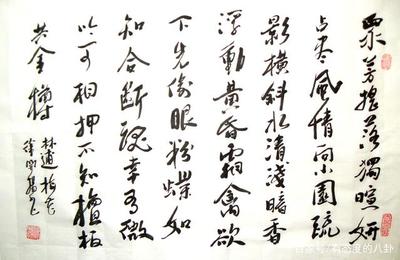 眾芳搖落獨暄妍
占盡風情向小園疏
影橫斜水清淺暗香
浮動黃昏霜禽欲
下先偷眼粉蝶如
知合斷魂幸有微
吟可相押不知檀板
共金樽
林逋梅花
百家号/有态度的八卦